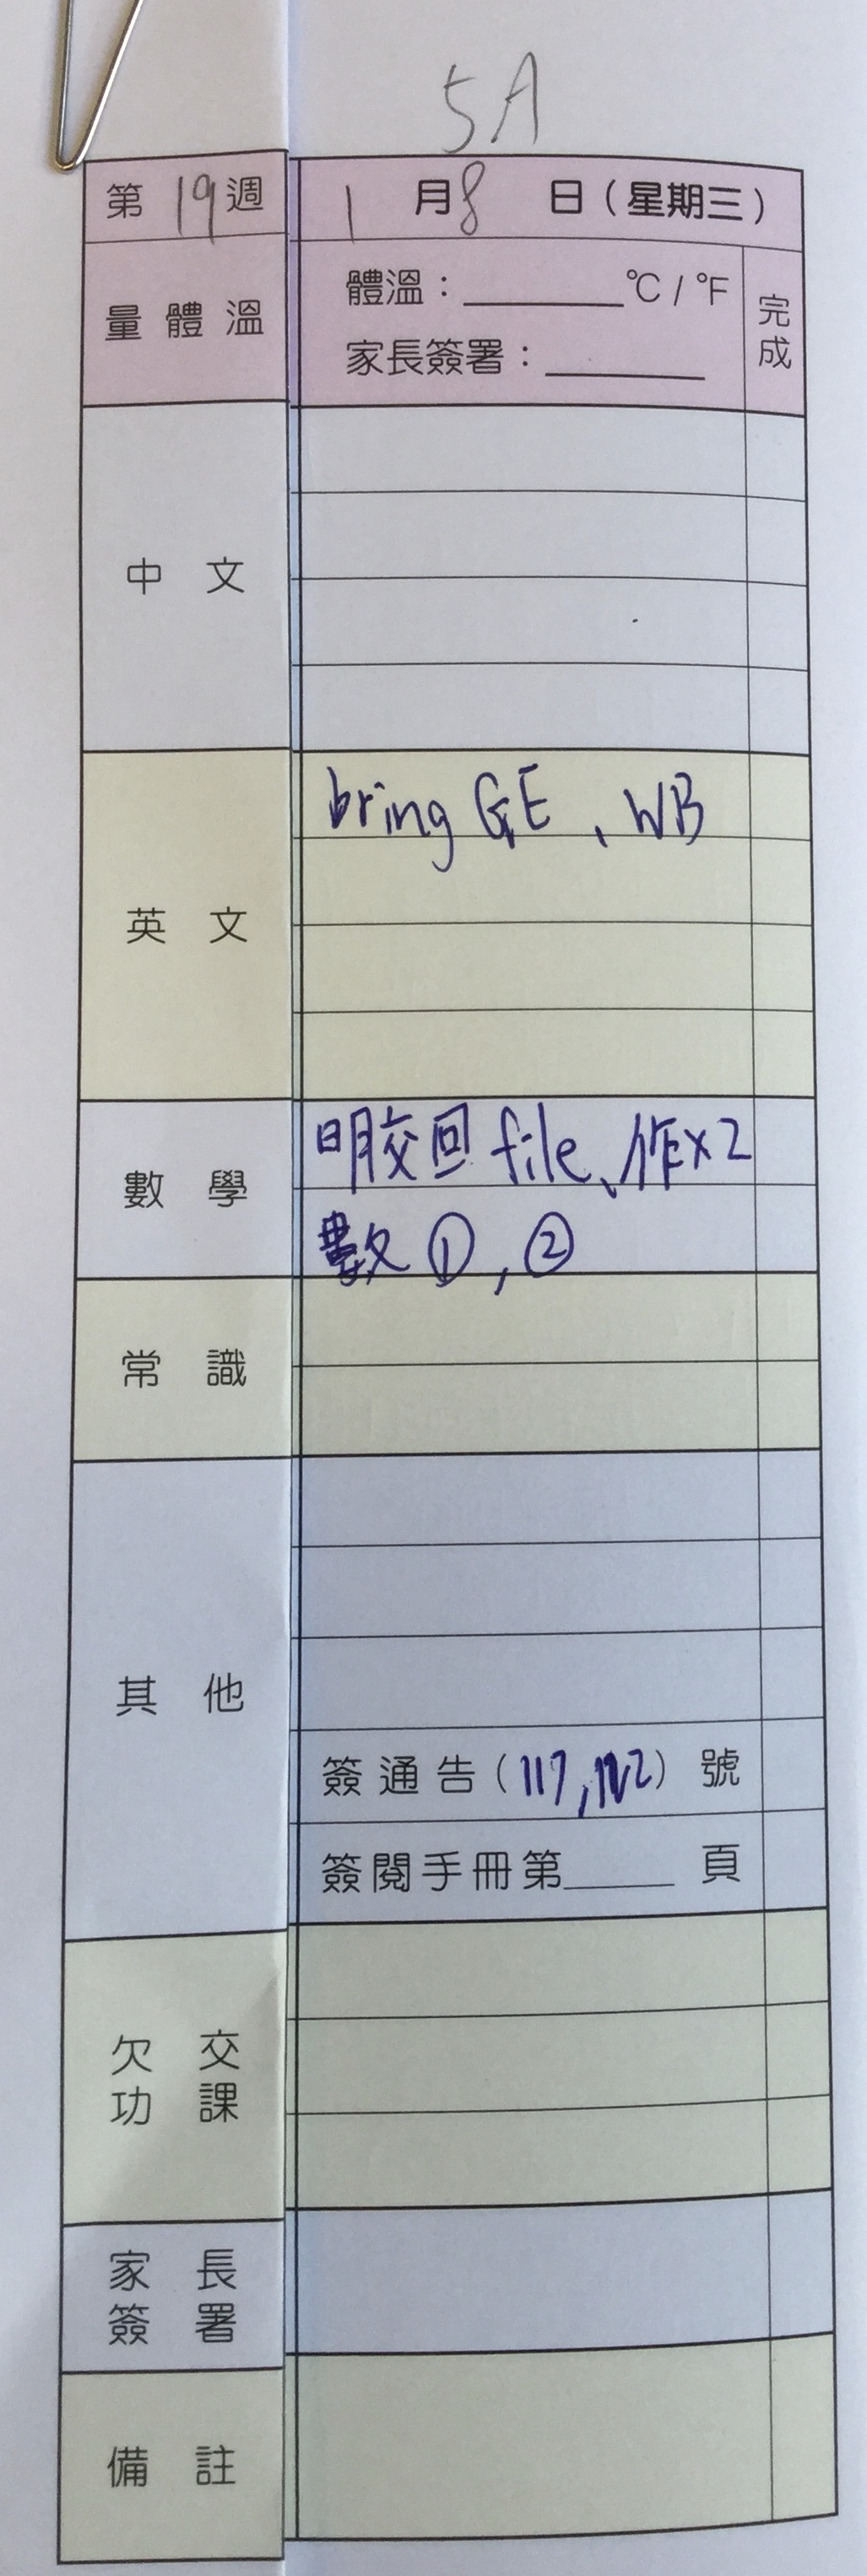 5A
第19週 1月8日（星期三）
量體溫 體溫：______°C / °F 完成
家長簽署：______
中文
bring GE、WB
英文
明交回 file、作x2
數學
數①,②
常識
其他
簽通告(117,122)號
簽閱手冊第____頁
欠交功課
家長簽署
備註